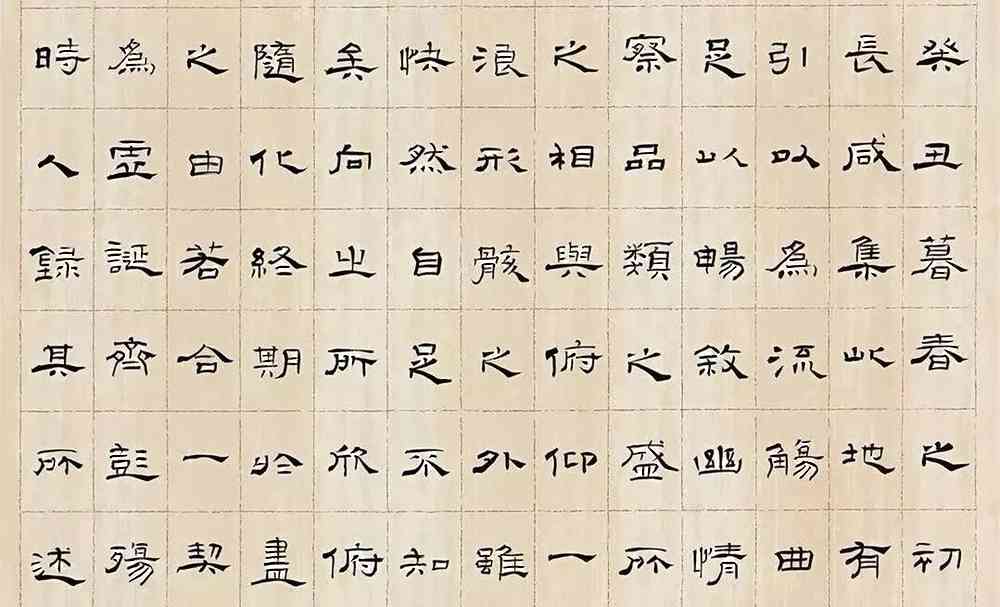 癸丑暮春之初
長咸集此地有
引以為流觴曲
足以暢敘幽情
察品類之盛所
之相與俯仰一
浪形骸之外雖
快然自足不知
矣向之所欣俯
隨化終期於盡
之由若合一契
為虛誕齊彭殤
時人錄其所述